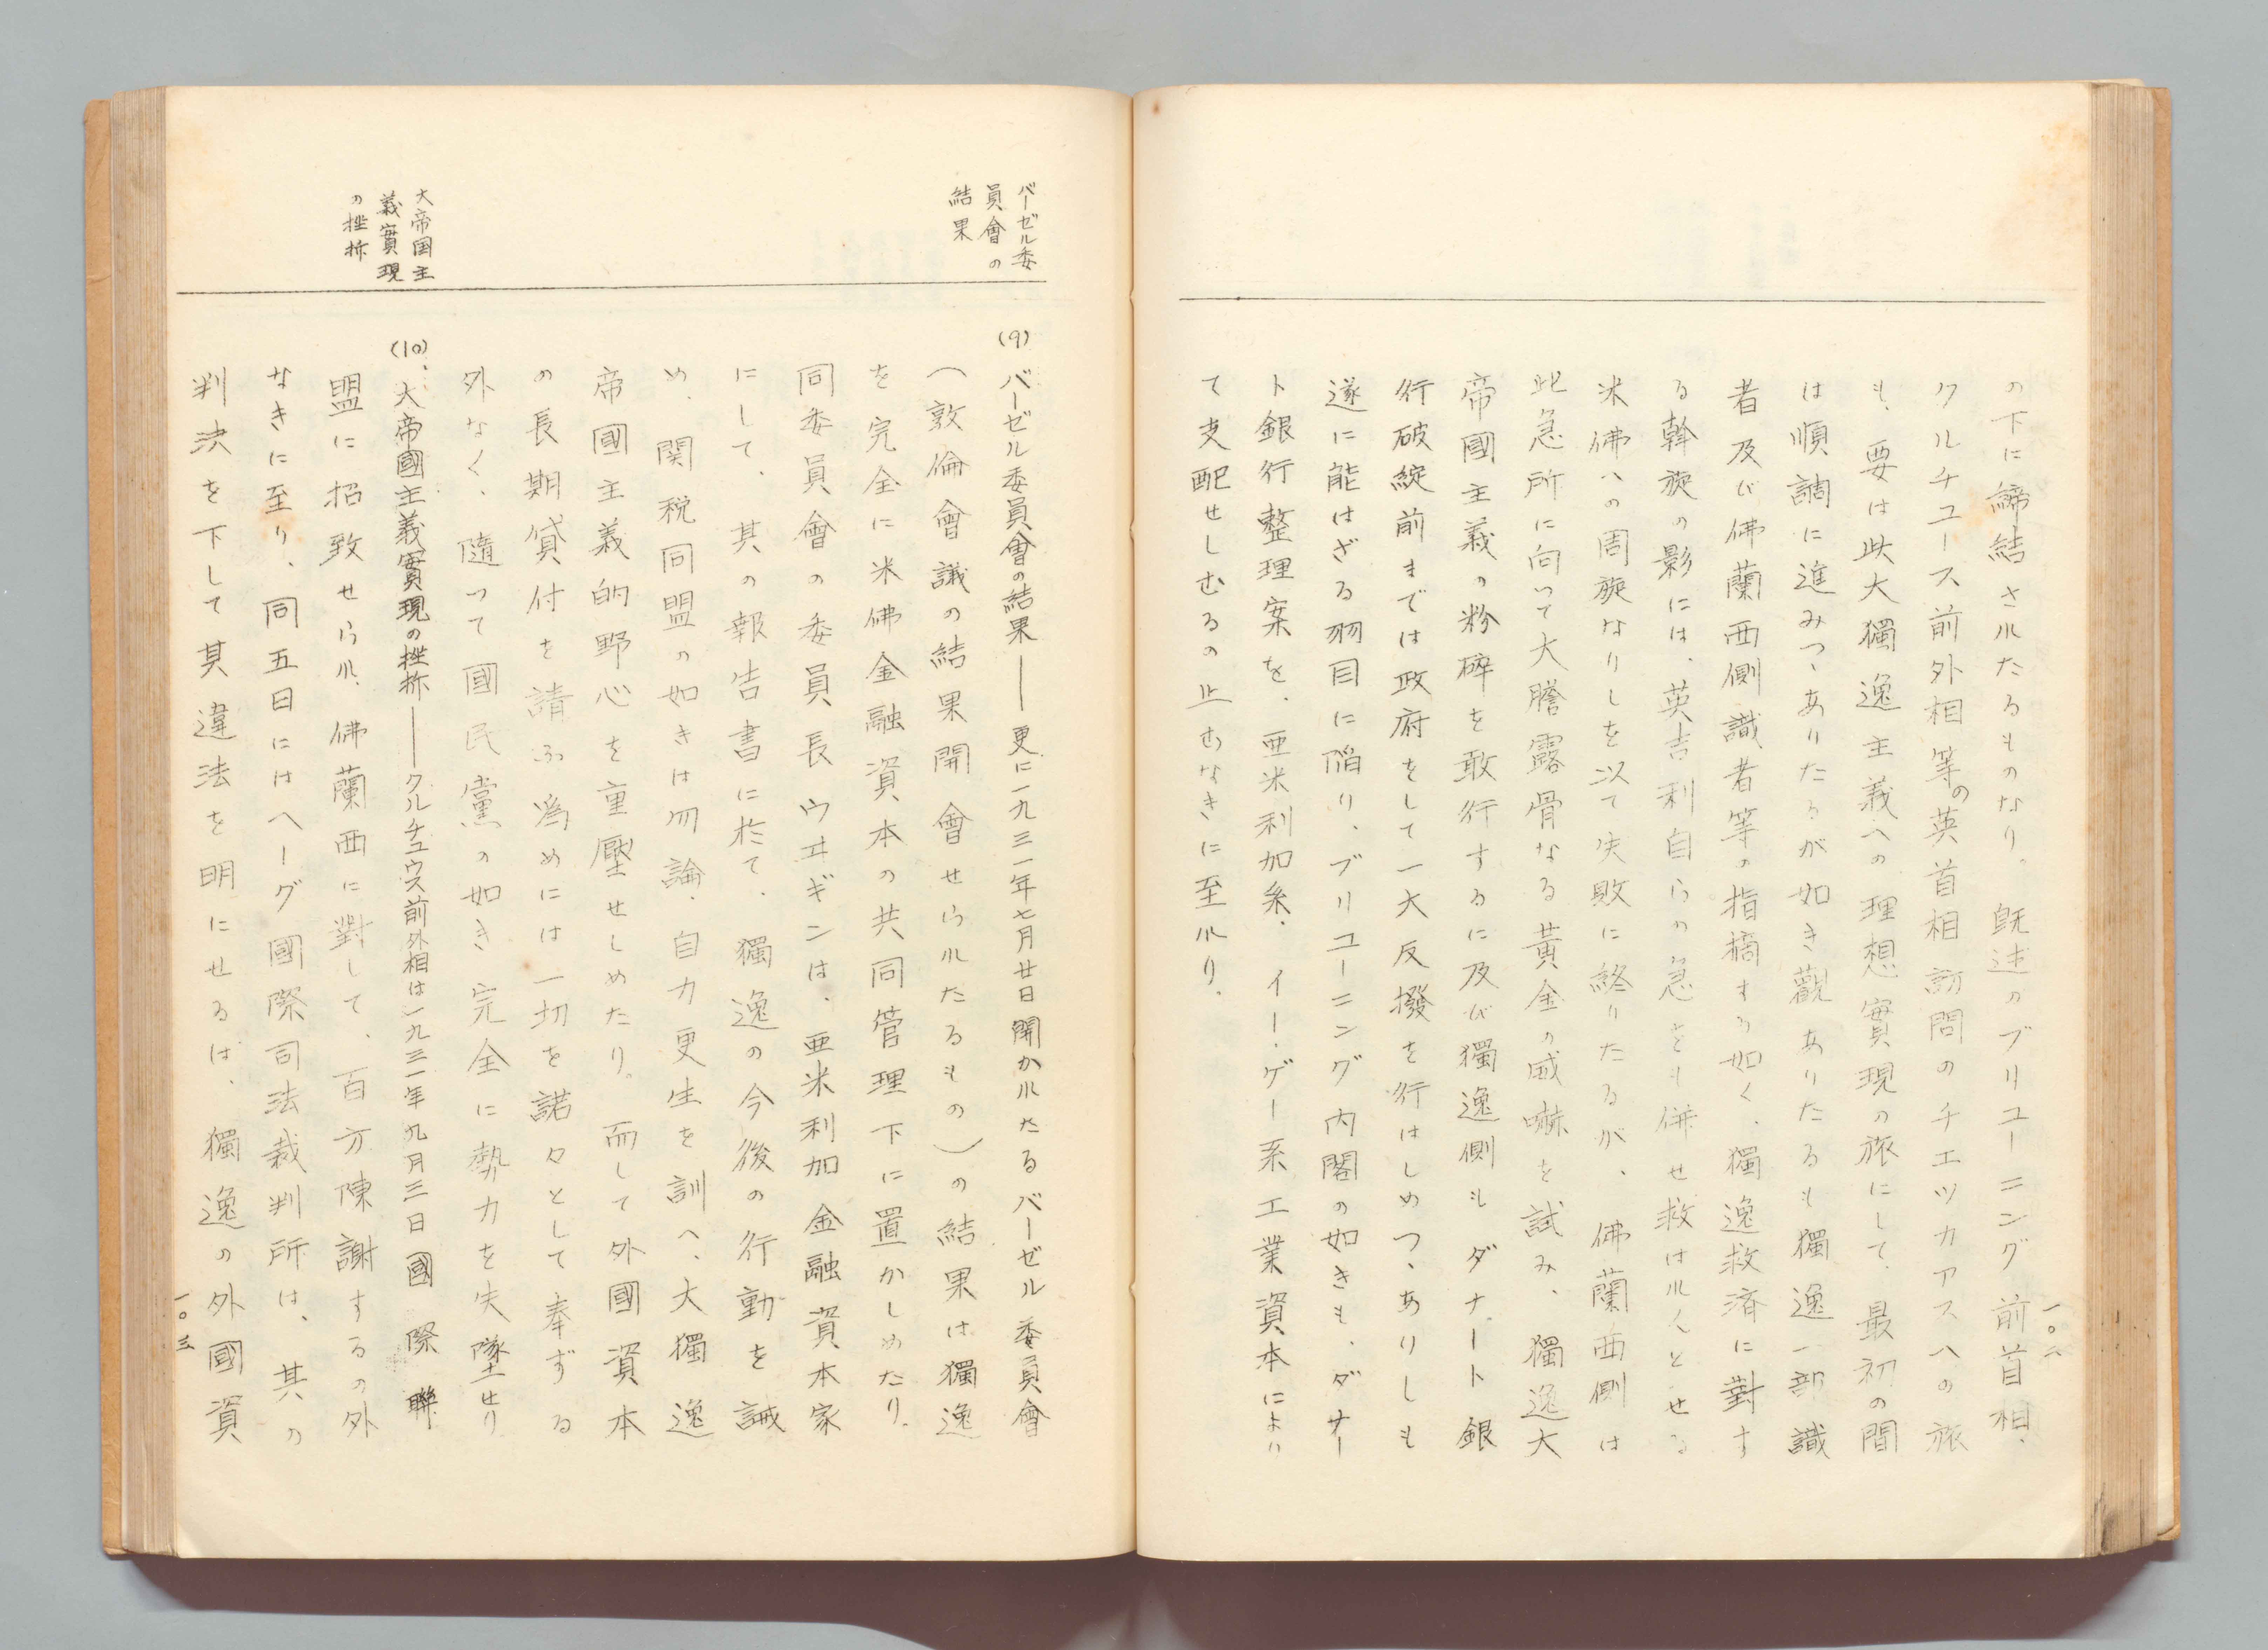 の下に締結されたるものなり。既述のブリユーニング前首相、
クルチユース前外相等の英首相訪問のチエツカアスへの旅
も、要は此大獨逸主義への理想實現の旅にして、最初の間
は順調に進みつゝありたるが如き觀ありたるも獨逸一部識
者及び佛蘭西側識者等の指摘する如く、獨逸救済に對す
る斡旋の影には、英吉利自らの急をも併せ救はれんとせる
米佛への周旋なりしを以て失敗に終りたるが、佛蘭西側は
此急所に向いて大謄露骨なる黃金の威嚇を試み、獨逸大
帝國主義の粉碎を敢行するに及び獨逸側もダナート銀
行破綻前までは政府をして一大反撥を行はしめつゝありしも
遂に能はざる羽目に陷り、ブリユーニング内閣の如きも、ダナー
ト銀行整理案を、亜米利加系、イー・ゲー系工業資本により
て支配せしむるの止むなきに至れり。
一〇二
バーゼル委
員會の
結果
(9)バーゼル委員會の結果――更に一九三一年七月廿日開かれたるバーゼル委員會
(敦倫會議の結果開會せられたるもの)の結果は獨逸
を完全に米佛金融資本の共同管理下に置かしめたり。
同委員會の委員長ウヰギンは、亜米利加金融資本家
にして、其の報告書に於て、獨逸の今後の行動を誡
め、関税同盟の如きは勿論、自力更生を訓へ、大獨逸
帝國主義的野心を重壓せしめたり。而して外國資本
の長期貸付を請ふ爲めには一切を諾々として奉ずる
外なく、隨つて國民黨の如き完全に勢力を失墜せり
大帝国主
義實現
の挫折
(10)、大帝國主義實現の挫折――クルチュウス前外相は一九三一年九月三日國際聯
盟に招致せられ、佛蘭西に對して、百方陳謝するの外
なきに至り、同五日にはヘーグ國際司法裁判所は、其の
判決を下して其違法を明にせるは、獨逸の外國資
一〇三